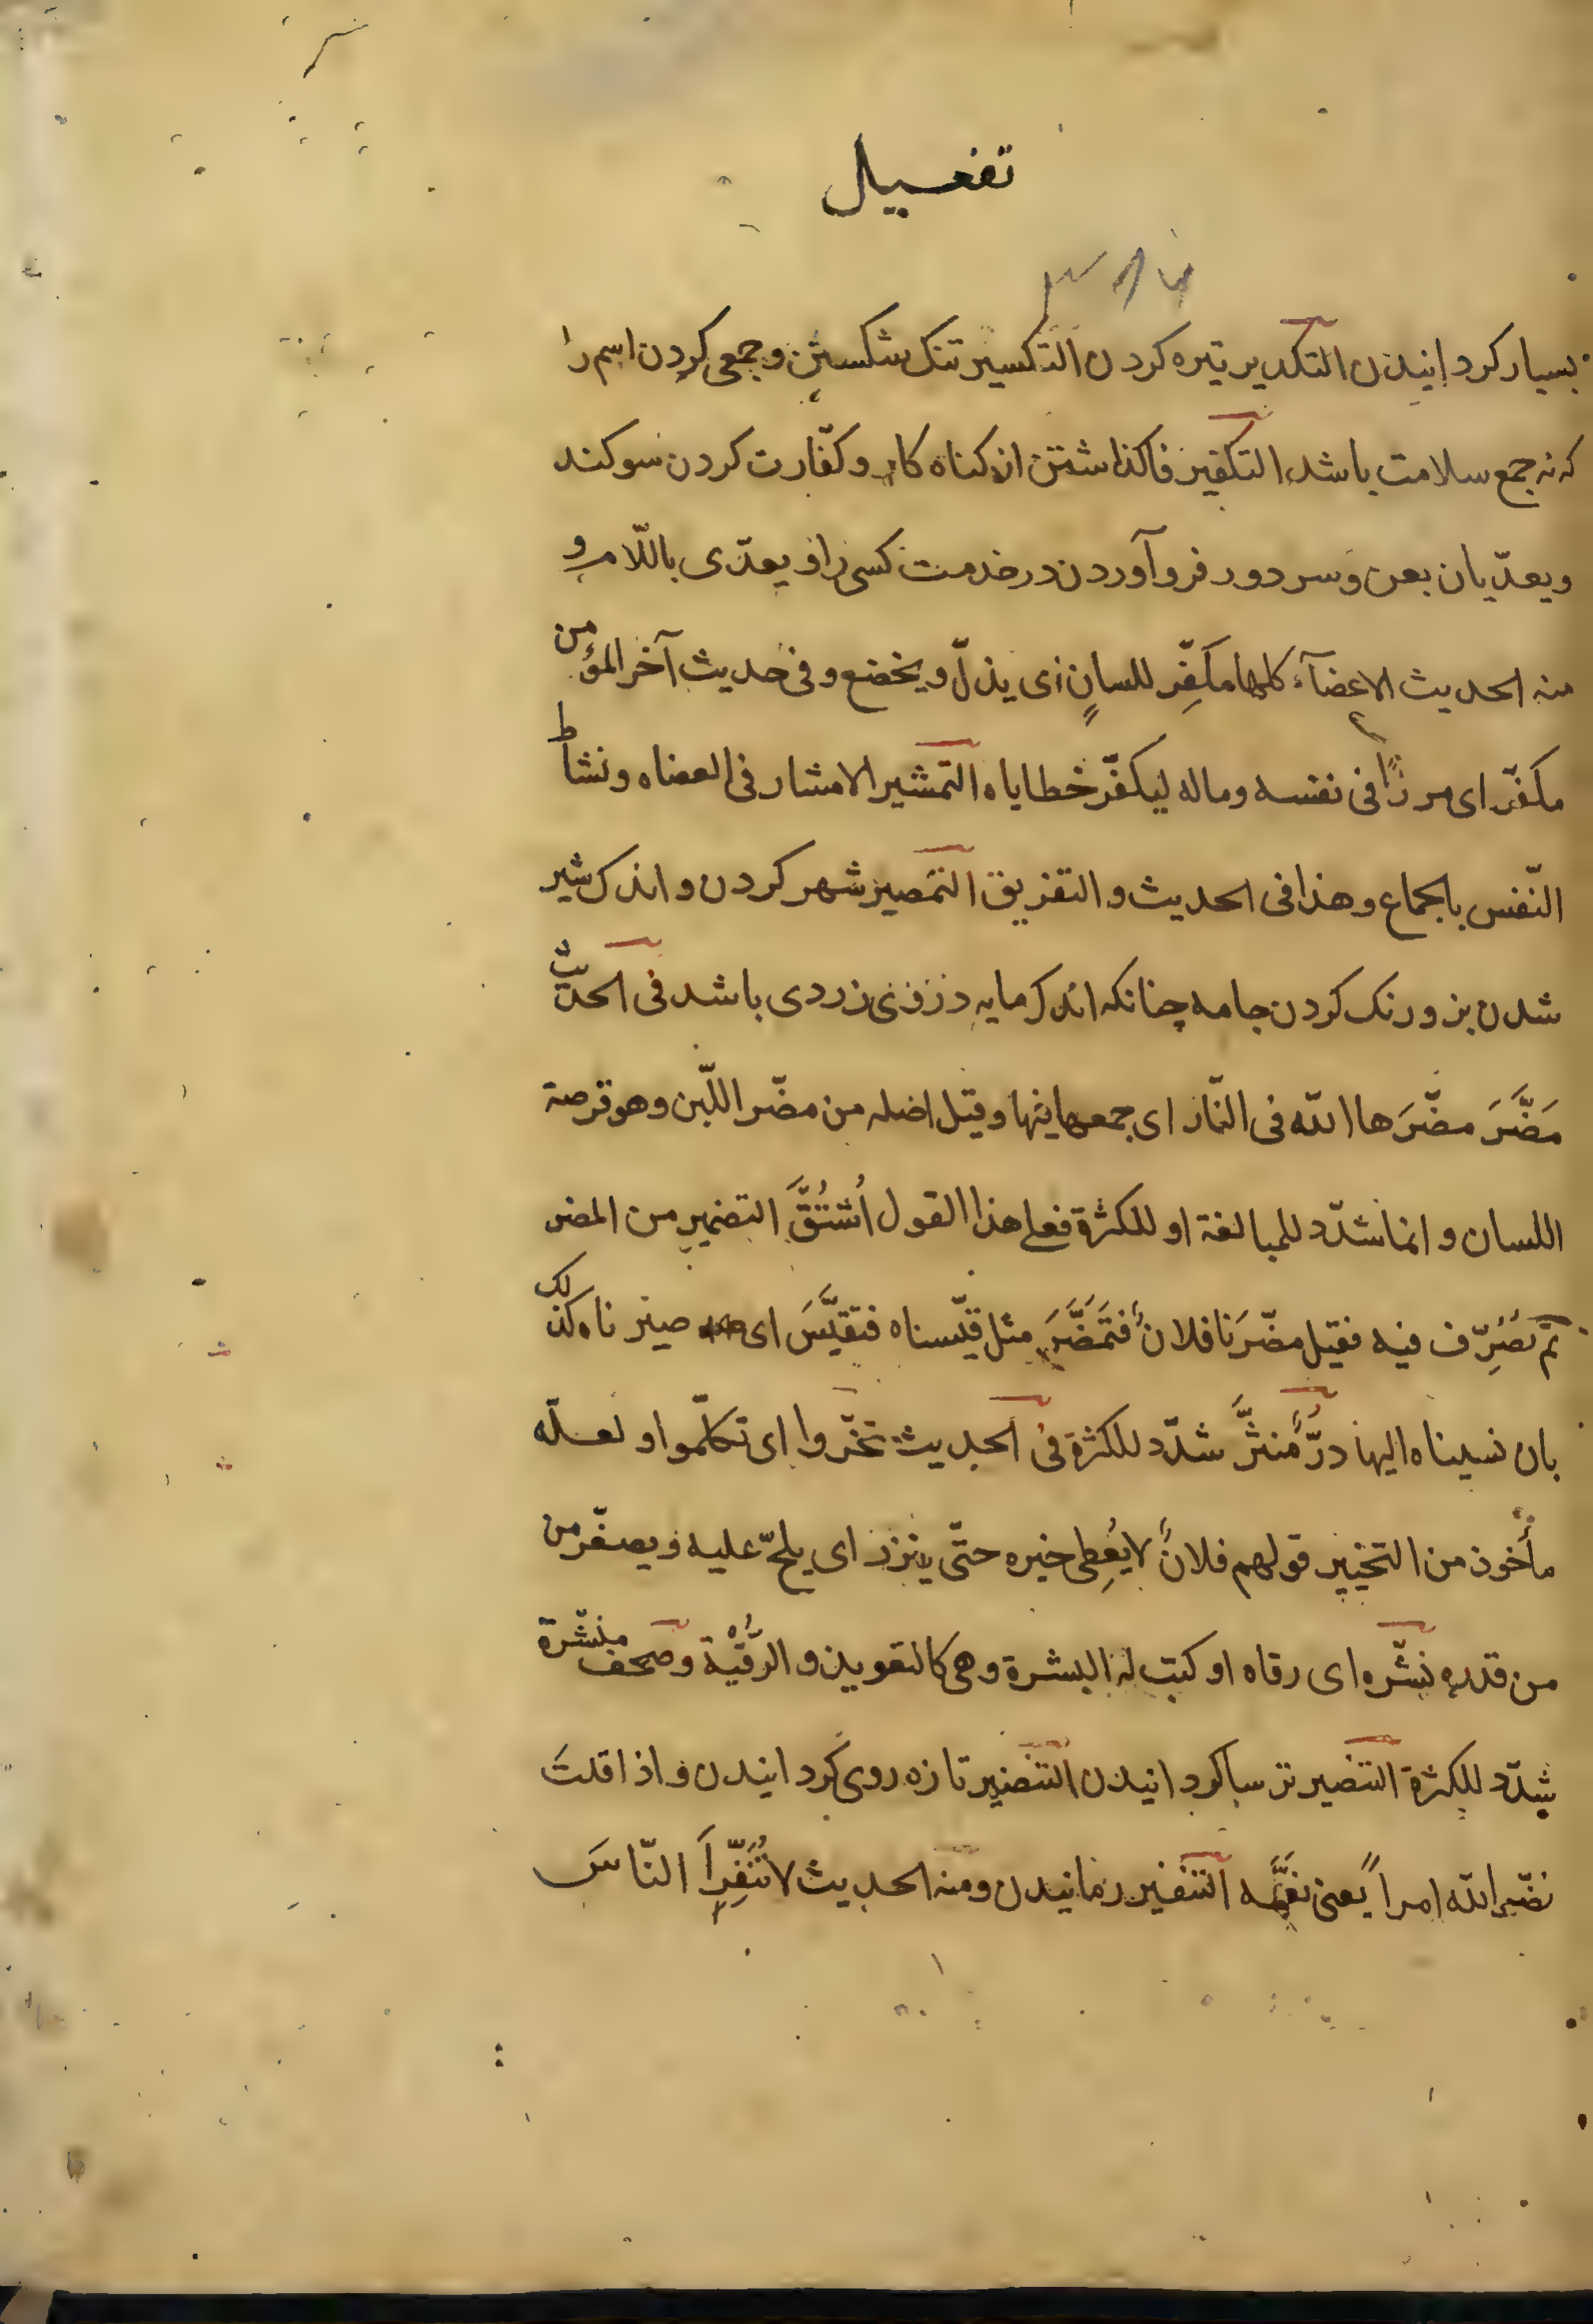 تفعيل
۳۸۷
بسیار کردانیدن التکدیر تیره کردن التکسیر تنک شکستن و جمعی کردن اسم را
که نه جمع سلامت باشد التکفیر فاکذاشتن از کناه کار و کفّارت کردن سوکند
ویعدّیان بعن و سر دور فرو آوردن در خدمت کسی را و یعدّی باللّام و
منه الحدیث الاعضآء کلها مکَفِّر للسانِ ای یذلّ ویخضع و فی حدیث آخر المؤمن
مکفّر ای مرزّاً فی نفسه وماله لیکفّر خطایاه التمشیر الامشار فی العضاه ونشاط
النّفس بالجماع و هذا فی الحدیث و التفریق التمصیر شهر کردن و اندک شیر
شدن بز و رنک کردن جامه چنانکه اندک مایه در زردی باشد فی الحدیث
مَضَّرَ مضّرَها اللّه فی النّار ای جمعها فیها و قیل اصله من مضّر اللّبن وهو قرصة
اللسان و انما شدّد للمبالغة او للکثرة فعلی هذا القول اُشتُقَّ التضمیر من المضر
ثمّ تُصُرِّف فیه فقیل مضّرَنا فلانٌ فتَمَضَّرَ مثل قیّسناه فتقیَّسَ ای صیّرناه کذلک
بان نسبناه الیها درٌّ مُنثَّرٌ شدّد للکثرة فی الحدیث نخّروا ای تکلّموا و لعلّه
مأخوذ من النخیر قولهم فلانٌ لا یُعطِی خیره حتّی ینزر ای یلحّ علیه و یصغّر من
من قدره نشّره ای رقاه او کتب له النشرة و هی کالتعویذ و الرُّقْیة و صحف منشّرة
شدّد للکثرة التنصیر ترسا کردانیدن التنضیر تازه روی کردانیدن و اذا قلتَ
نضّر اللّه امرأً یعنی نعّمه التنفیر رمانیدن و منه الحدیث لا تُنَفِّرا النّاسَ